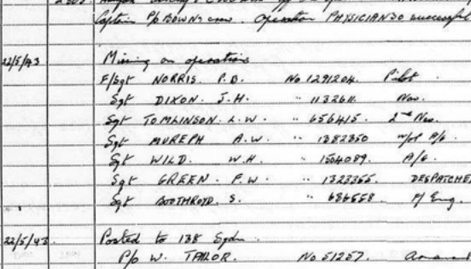 Captain P/O BOWN's crew. Operation PHYSICIAN 30 successful
22/5/43 Missing on operations
F/Sgt NORRIS. P.D. No 1291204. Pilot
Sgt DIXON. J.H. " 1132611. Nav.
Sgt TOMLINSON. L.W. " 656415. 2nd Nav.
Sgt A.W. " 1382350 A/G.
Sgt WILD. W.H. " 1504089. A/G.
Sgt GREEN. P.W. " 1323355. DESPATCHE
Sgt BOOTHROYD. S. " 686558. F/Eng.
22/5/43. Posted to 138 Sqdn.
P/O W. TAILOR. No 51257.